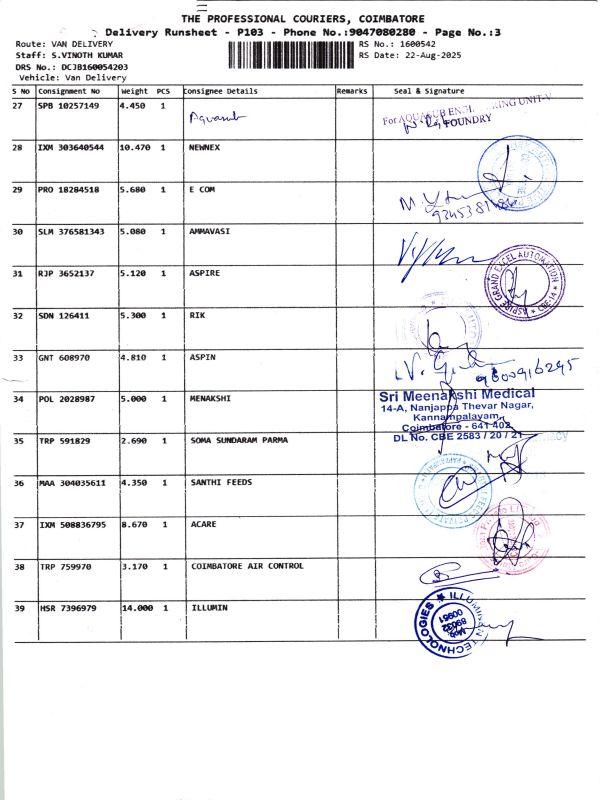 THE PROFESSIONAL COURIERS, COIMBATORE
Delivery Runsheet - P103 - Phone No.:9047080280 - Page No.:3
Route: VAN DELIVERY
Staff: S.VINOTH KUMAR
DRS No.: DCJB160054203
Vehicle: Van Delivery
RS No.: 1600542
RS Date: 22-Aug-2025
S No Consignment No Weight PCS Consignee Details Remarks Seal & Signature
27 SPB 10257149 4.450 1 Aquasub
For AQUASUB ENGINEERING UNIT-V
FOUNDRY
28 IXM 303640544 10.470 1 NEWNEX
29 PRO 18284518 5.680 1 E COM
30 SLM 376581343 5.080 1 AMMAVASI
31 RJP 3652137 5.120 1 ASPIRE
ASPIRE GRAND EXCEL AUTOMATION * CBE-14 *
32 SDN 126411 5.300 1 RIK
33 GNT 608970 4.810 1 ASPIN
9600916295
34 POL 2028987 5.000 1 MENAKSHI
Sri Meenakshi Medical
14-A, Nanjappa Thevar Nagar,
Kannampalayam,
Coimbatore - 641 402.
DL No. CBE 2583 / 20 / 21
35 TRP 591829 2.690 1 SOMA SUNDARAM PARMA
36 MAA 304035611 4.350 1 SANTHI FEEDS
37 IXM 508836795 8.670 1 ACARE
38 TRP 759970 3.170 1 COIMBATORE AIR CONTROL
39 HSR 7396979 14.000 1 ILLUMIN
TECHNOLOGIES
Mob
89032
00951